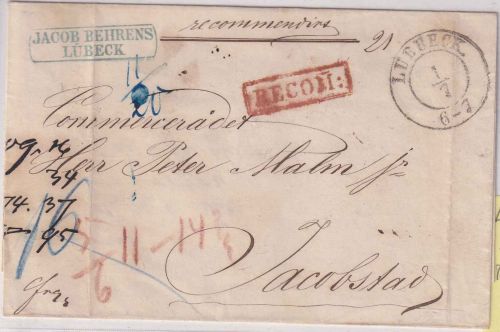 JACOB BEHRENS
LÜBECK
recommendirt
21
LUEBECK
1/7
6-7
11
20
RECOM:
Commerierådet
Herr Peter Malm jr
34
74. 37
95
11 - 14
6
Jacobstad